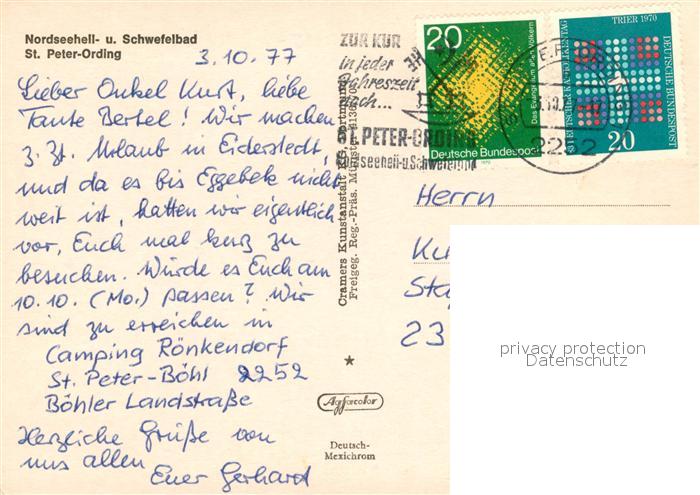 Nordseeheil- u. Schwefelbad
St. Peter-Ording
3.10.77
Lieber Onkel Kurt, liebe
Tante Bertel! Wir machen
z. Zt. Urlaub in Eiderstedt,
und da es bis Eggebek nicht
weit ist, hatten wir eigentlich
vor, Euch mal kurz zu
besuchen. Würde es Euch am
10.10. (Mo.) passen? Wir
sind zu erreichen in
Camping Rönkendorf
St. Peter-Böhl 2252
Böhler Landstraße
Herzliche Grüße von
uns allen
Euer Gerhard
Cramers Kunstanstalt KG, Dortmund
Freigeg. Reg.-Präs. Münster
Agfacolor
Deutsch-
Mexichrom
ZUR KUR
in jeder
Jahreszeit
nach...
ST. PETER-ORDING
Nordseeheil-u.Schwefelbad
20
Das Evangelium allen Völkern
Deutsche Bundespost
TRIER 1970
DEUTSCHE BUNDESPOST
DEUTSCHER KATHOLIKENTAG
20
2252
Herrn
Ku
Sta
23
privacy protection
Datenschutz